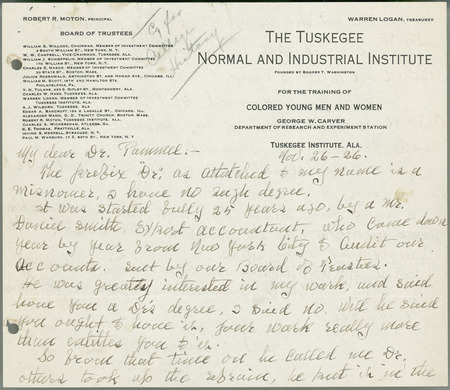 ROBERT R. MOTON, PRINCIPAL
WARREN LOGAN, TREASURER
BOARD OF TRUSTEES
WILLIAM G. WILLCOX, CHAIRMAN, MEMBER OF INVESTMENT COMMITTEE
3 SOUTH WILLIAM ST., NEW YORK, N. Y.
W. W. CAMPBELL, VICE-CHAIRMAN, TUSKEGEE, ALA.
WILLIAM J. SCHIEFFELIN, MEMBER OF INVESTMENT COMMITTEE
170 WILLIAM ST., NEW YORK, N. Y.
CHARLES E. MASON, MEMBER OF INVESTMENT COMMITTEE
30 STATE ST., BOSTON, MASS.
JULIUS ROSENWALD, ARTHINGTON ST. AND HOMAN AVE., CHICAGO, ILL.
WILLIAM M. SCOTT, 1819 & HAMILTON STS.
PHILADELPHIA, PA.
V. H. TULANE, 430 S. RIPLEY ST., MONTGOMERY, ALA.
CHARLES W. HARE, TUSKEGEE, ALA.
WARREN LOGAN, MEMBER OF INVESTMENT COMMITTEE
TUSKEGEE INSTITUTE, ALA.
A. J. WILBORN, TUSKEGEE, ALA.
EDGAR A. BANCROFT, 134 S. LASALLE ST., CHICAGO, ILL.
ALEXANDER MANN, D. D., TRINITY CHURCH, BOSTON, MASS.
ROBERT R. MOTON, TUSKEGEE INSTITUTE, ALA.
CHARLES A. WICKERSHAM, ATLANTA, GA.
C. E. THOMAS, PRATTVILLE, ALA.
IRVING S. MERRELL, SYRACUSE, N. Y.
PAUL M. WARBURG, 17 E. 80TH ST., NEW YORK, N. Y.
THE TUSKEGEE
NORMAL AND INDUSTRIAL INSTITUTE
FOUNDED BY BOOKER T. WASHINGTON
FOR THE TRAINING OF
COLORED YOUNG MEN AND WOMEN
GEORGE W. CARVER
DEPARTMENT OF RESEARCH AND EXPERIMENT STATION
TUSKEGEE INSTITUTE, ALA.
My dear Dr. Pammel:- Nov. 26-26.
The prefix "Dr." as attached to my name is a
misnomer, I have no such degree.
It was started fully 25 years ago, by a Mr.
Daniel Smith, Expert accountant, who came down
year by year from New York City to Audit our
accounts. Sent by our Board of Trustees.
He was greatly interested in my work, and said
have you a Dr's degree, I said no. Well he said
you ought to have it, your work really more
than entitles you to it.
So from that time on he called me Dr,
others took up the refrain, he put it in the